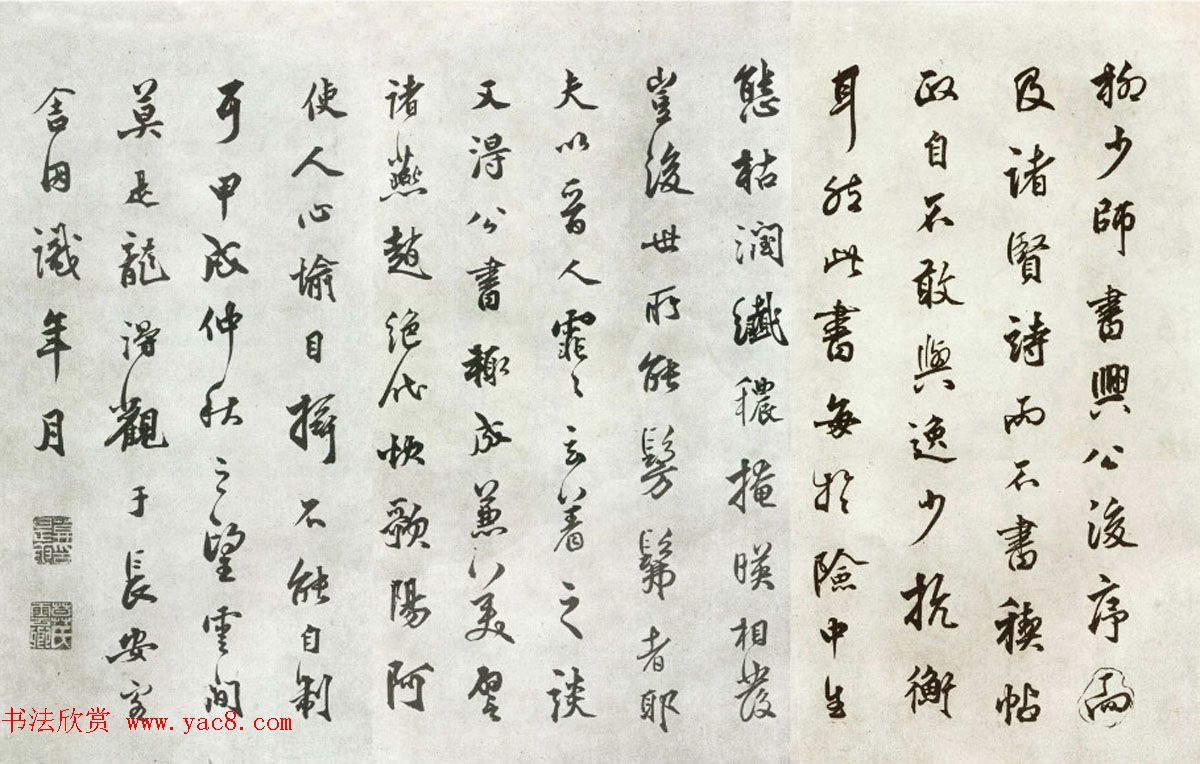 柳少師書興公後序而
及諸賢詩而不書稧帖
政自不敢與逸少抗衡
耳然此書每於險中生
態枯潤纖穠掩暎相發
豈後世所能髣髴者耶
夫以晉人霏〻玄著之談
又得公書趣成兼行美譬
諸燕趙絕代帙歌陽阿
使人心愉目搖不能自制
耳甲戌仲秋之望雲間
莫是龍得觀于長安官
舍因識年月
书法欣赏 www.yac8.com